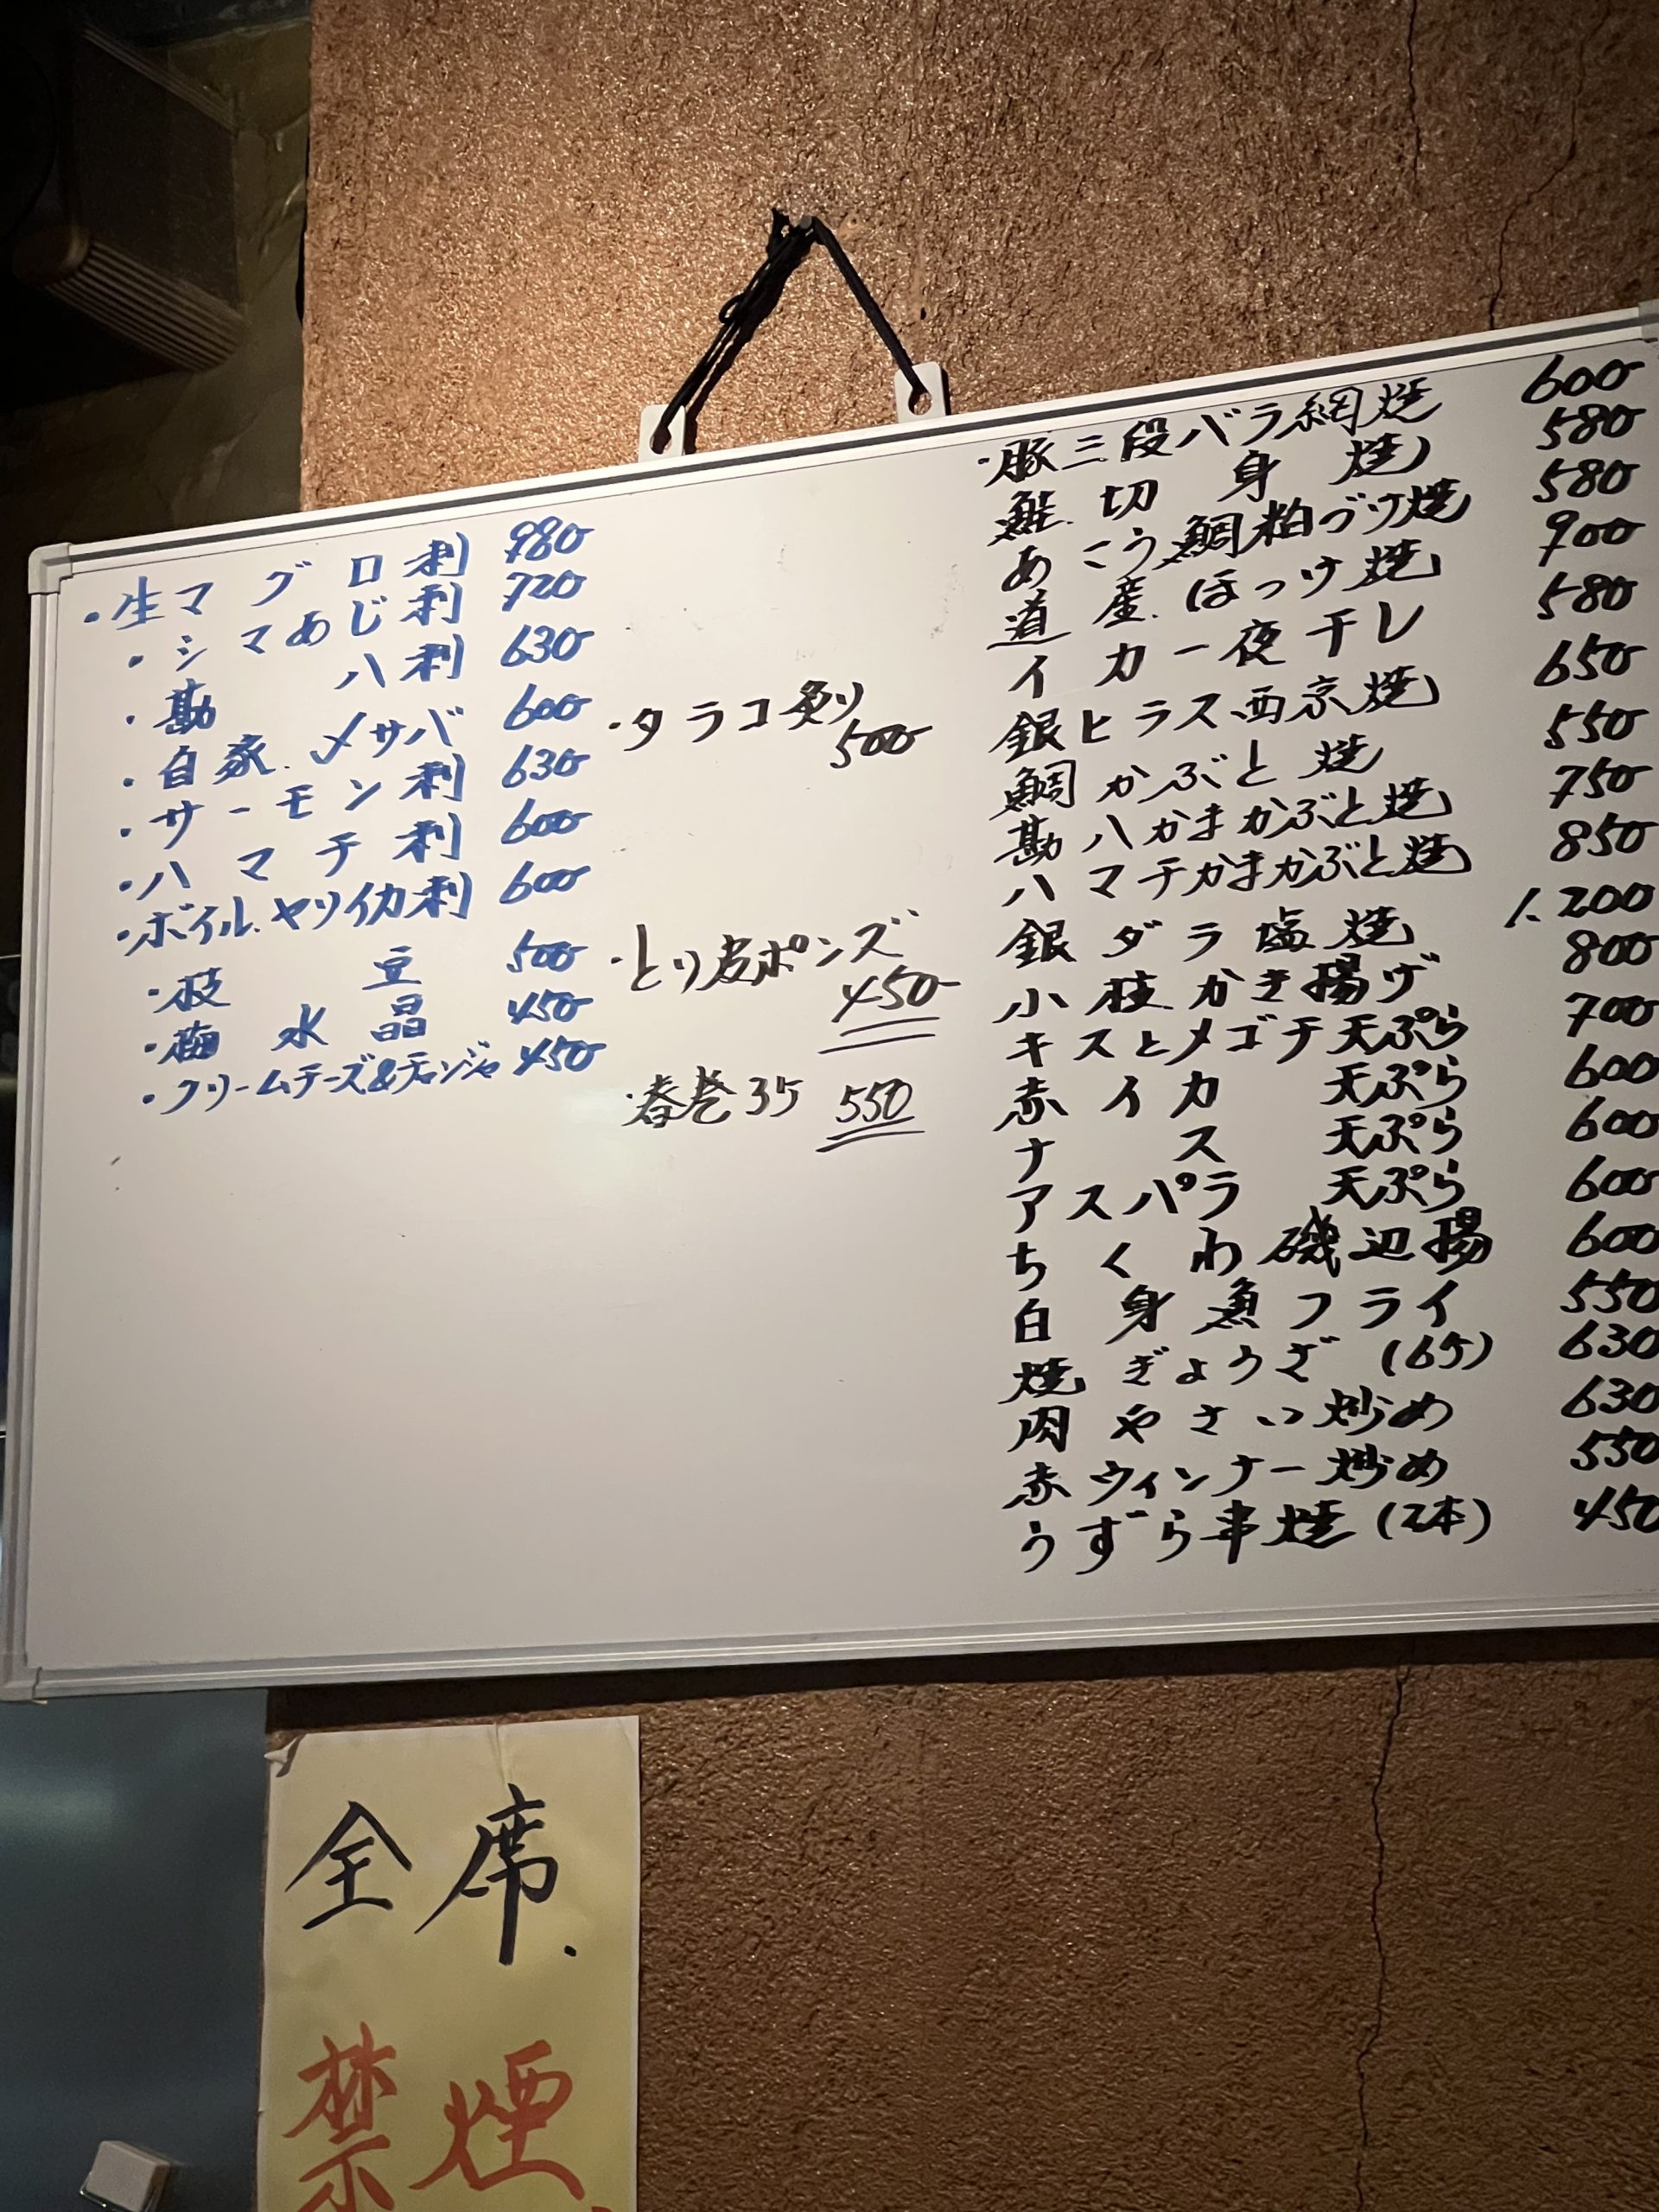 ・生マグロ刺 980
・シマあじ刺 720
・勘八刺 630
・自家〆サバ 600
・サーモン刺 630
・ハマチ刺 600
・ボイルヤリイカ刺 600
・枝豆 500
・梅水晶 450
・クリームチーズ&チャンジャ 450
・タラコ炙り
500
・とり皮ポンズ
450
・春巻3ケ 550
・豚三段バラ網焼 600
鮭切身焼 580
あこう鯛粕づけ焼 580
道産ほっけ焼 900
イカ一夜干し 580
銀ヒラス西京焼 650
鯛かぶと焼 550
勘八かまかぶと焼 750
ハマチかまかぶと焼 850
銀ダラ塩焼 1.200
小柱かき揚げ 800
キスとメゴチ天ぷら 700
赤イカ天ぷら 600
ナス天ぷら 600
アスパラ天ぷら 600
ちくわ磯辺揚 600
白身魚フライ 550
焼ぎょうざ(6ケ) 630
肉やさい炒め 630
赤ウィンナー炒め 550
うずら串焼(2本) 450
全席.
禁煙